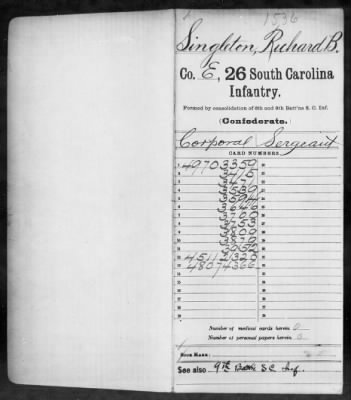 1536
Singleton, Richard B.
Co. E, 26 South Carolina
Infantry.
Formed by consolidation of 6th and 9th Batt'ns S. C. Inf.
(Confederate.)
Corporal Sergeant
CARD NUMBERS.
1 49703359
2 3415
3 3471
4 3539
5 3594
6 3646
7 3700
8 3753
9 3809
10 3879
11 3952
12 45112320
13 48074366
Number of medical cards herein 0
Number of personal papers herein 0
BOOK MARK:
See also 9th Batt. S C Inf.